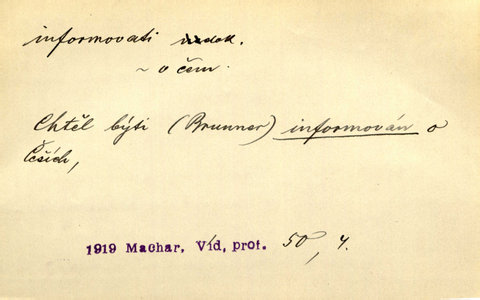 informovati nedok.
~ o čem.
Chtěl býti (Brunner) informován o
Češích,
1919 Machar, Víd, prof. 50, 4.